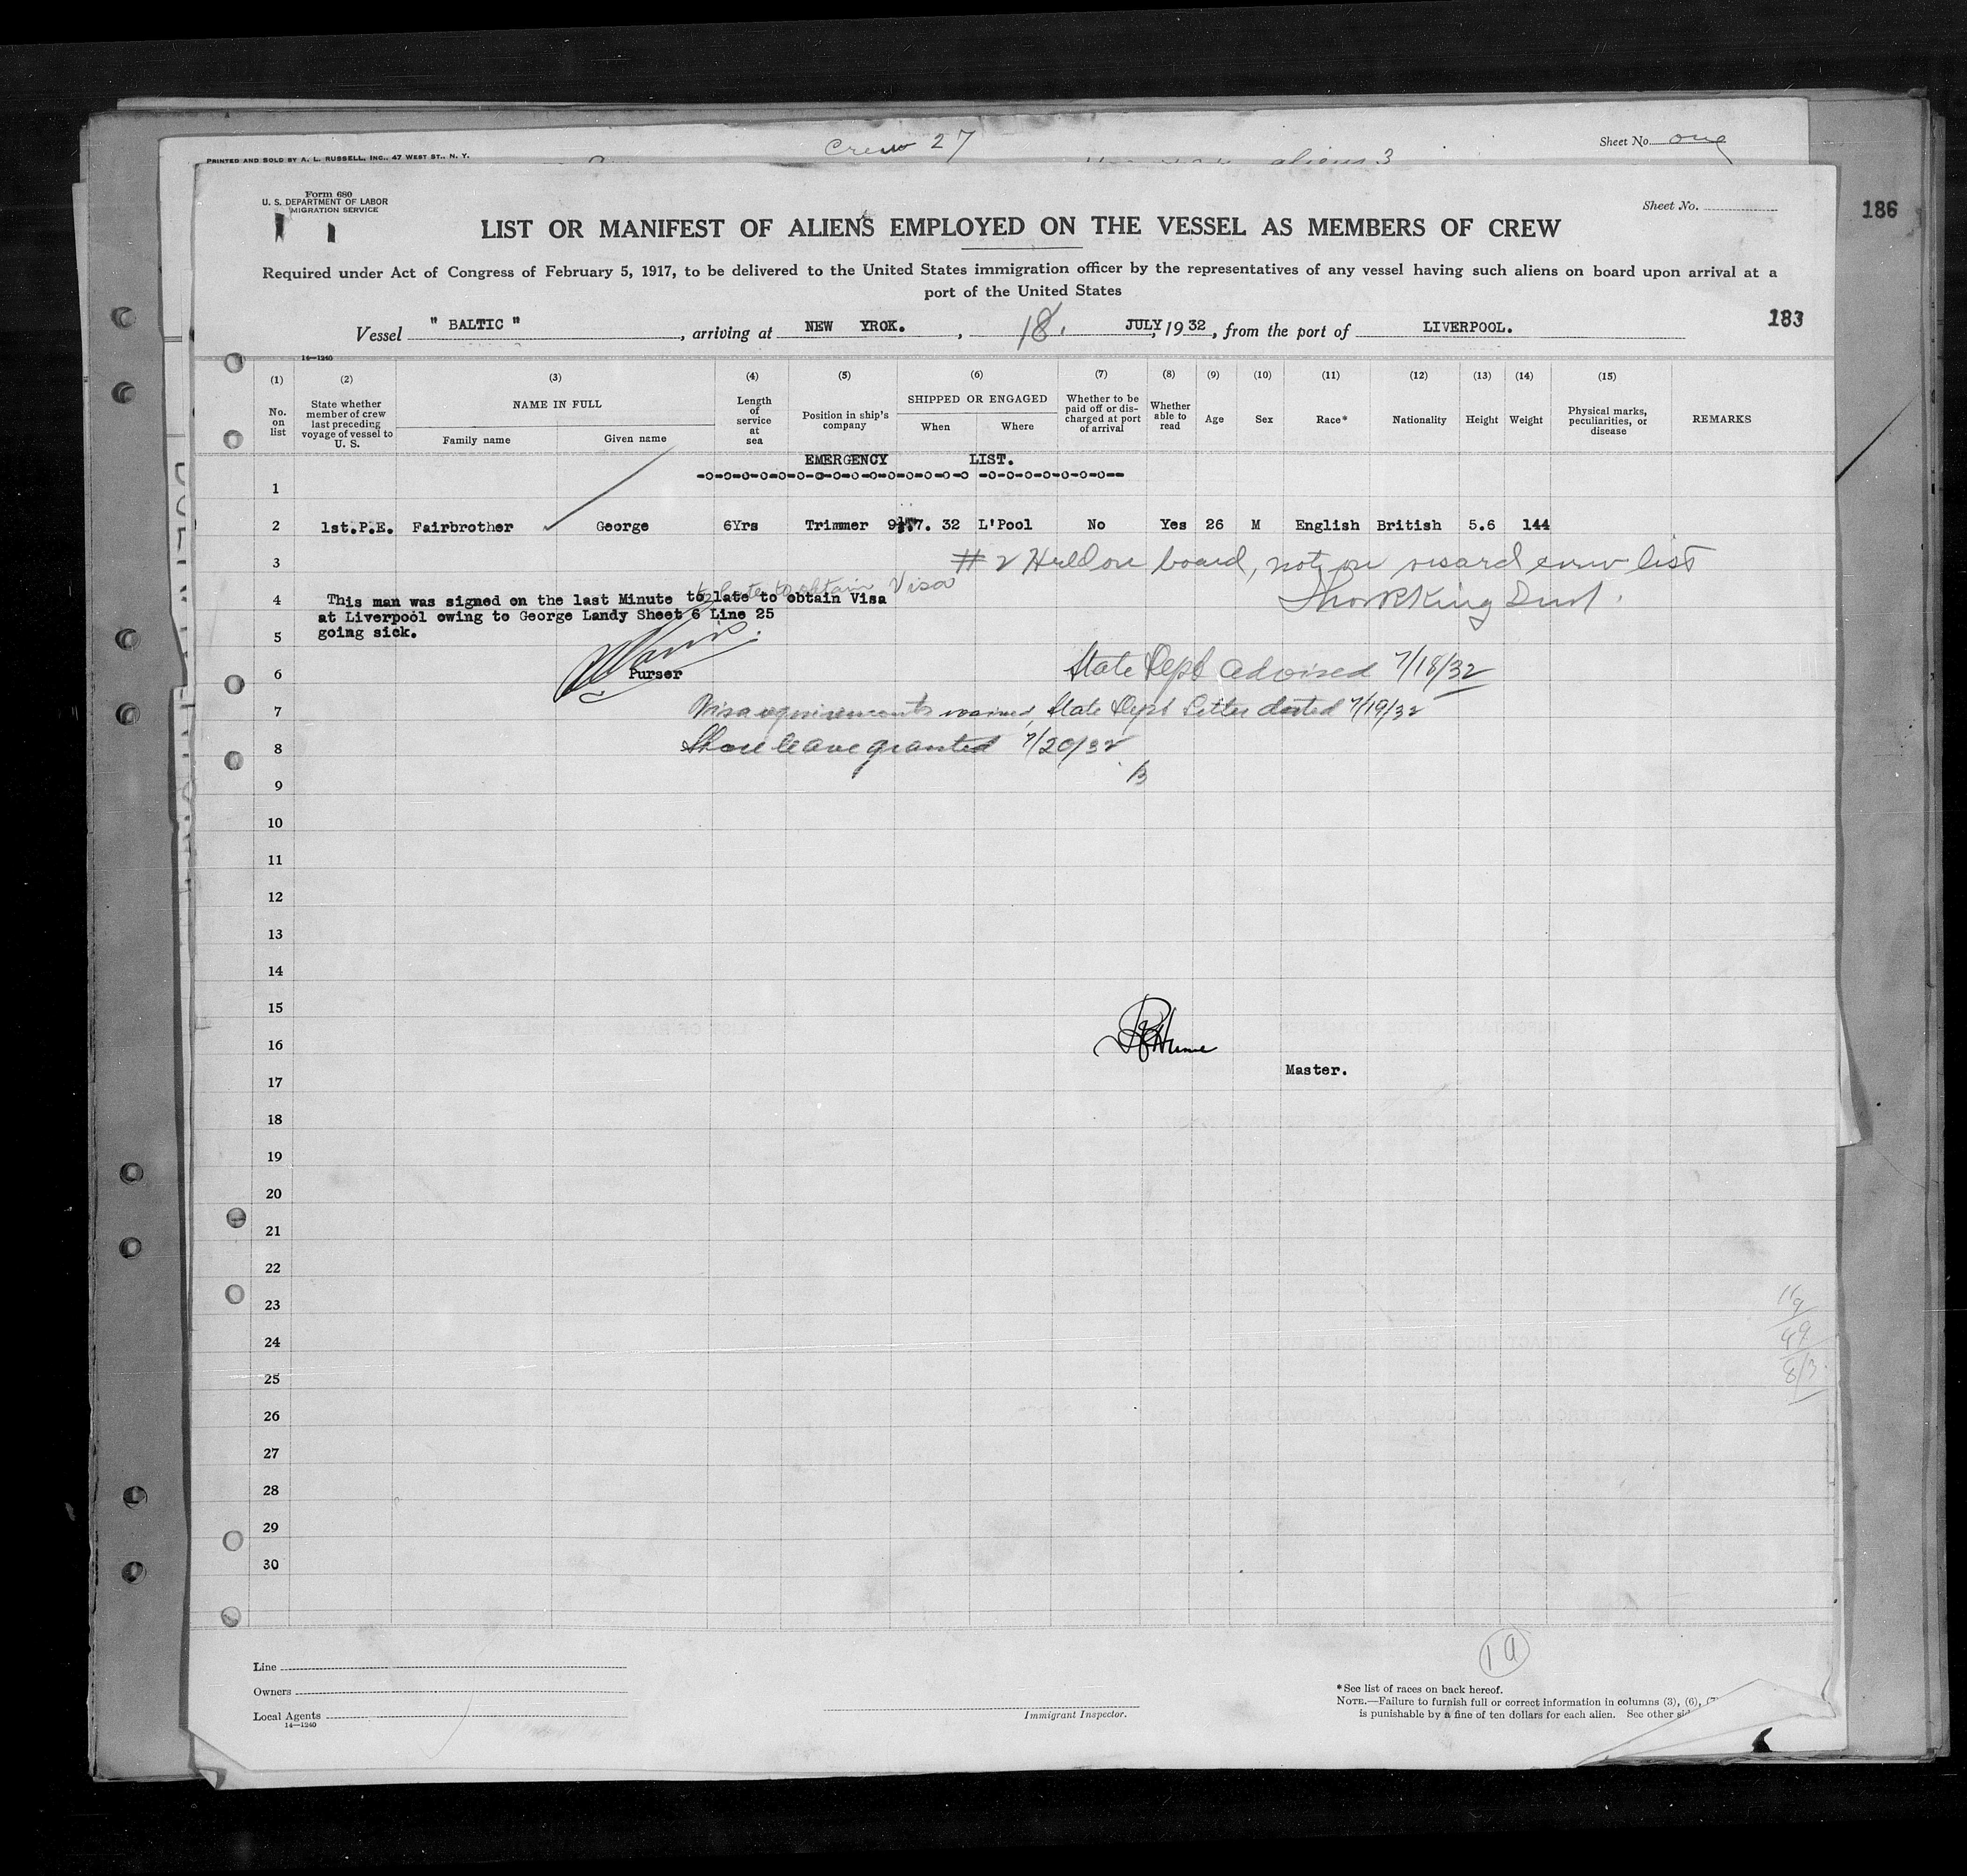 Crew 27
Sheet No. one
PRINTED AND SOLD BY A. L. RUSSELL, INC., 47 WEST ST., N. Y.
aliens 3
Form 680
U. S. DEPARTMENT OF LABOR
MIGRATION SERVICE
Sheet No.
186
LIST OR MANIFEST OF ALIENS EMPLOYED ON THE VESSEL AS MEMBERS OF CREW
Required under Act of Congress of February 5, 1917, to be delivered to the United States immigration officer by the representatives of any vessel having such aliens on board upon arrival at a
port of the United States
183
Vessel " BALTIC " , arriving at NEW YROK. , 18. JULY, 1932, from the port of LIVERPOOL.
14—1240
(1) (2) (3) (4) (5) (6) (7) (8) (9) (10) (11) (12) (13) (14) (15)
No. on list
State whether member of crew last preceding voyage of vessel to U. S.
NAME IN FULL
Family name
Given name
Length of service at sea
Position in ship's company
SHIPPED OR ENGAGED
When
Where
Whether to be paid off or discharged at port of arrival
Whether able to read
Age
Sex
Race*
Nationality
Height
Weight
Physical marks, peculiarities, or disease
REMARKS
EMERGENCY LIST.
1
2 1st.P.E. Fairbrother George 6Yrs Trimmer 9 7. 32 L'Pool No Yes 26 M English British 5.6 144
3 # 2 Held on board, not on visaed crew list
to late to obtain Visa
4 This man was signed on the last Minute to late to obtain Visa
at Liverpool owing to George Landy Sheet 6 Line 25
5 going sick.
6 Purser State Dept advised 7/18/32
7 Visa requirements waived, State Dept Letter dated 7/19/32
8 Shore leave granted 7/20/32
B
9
10
11
12
13
14
15
16 Hume
Master.
17
18
19
20
21
22
23
24
25
26
27
28
29
30
1a
Line
Owners
Local Agents
14—1240
Immigrant Inspector.
*See list of races on back hereof.
NOTE.—Failure to furnish full or correct information in columns (3), (6),
is punishable by a fine of ten dollars for each alien. See other